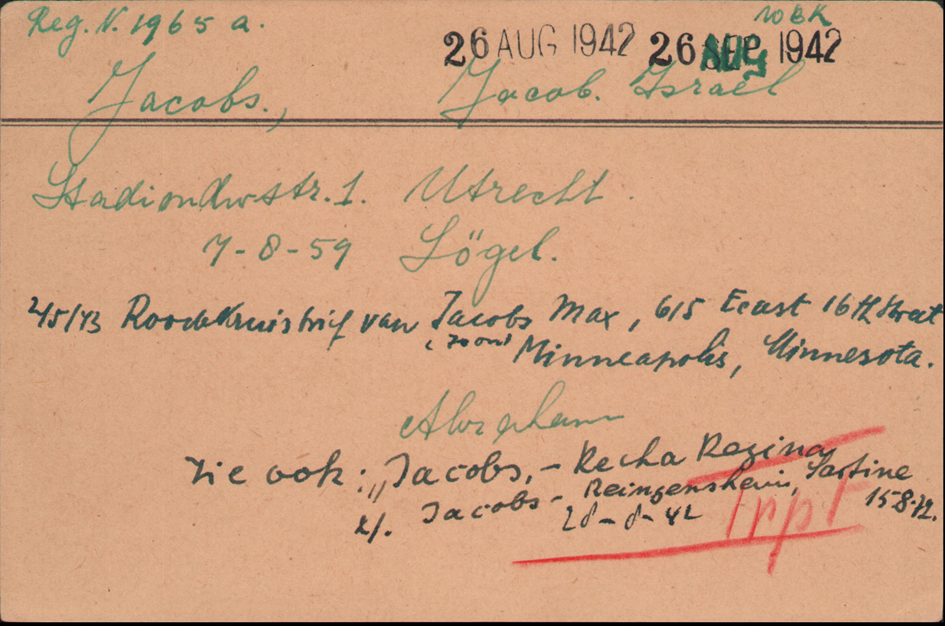 Reg. N. 1965 a.
10 BK
26 AUG 1942 26 AUG 1942
Jacobs., Jacob. Israël
Stadiondwstr. 1. Utrecht.
7-8-59 Sögel.
2/5/43 Roodekruisbrief van Jacobs Max, 615 East 16th Street
(zoon) Minneapolis, Minnesota.
Abraham
Zie ook: 1, Jacobs, - Recha Regina
2/. Jacobs - Sartine 15-8-72.
28-8-42 Trpt